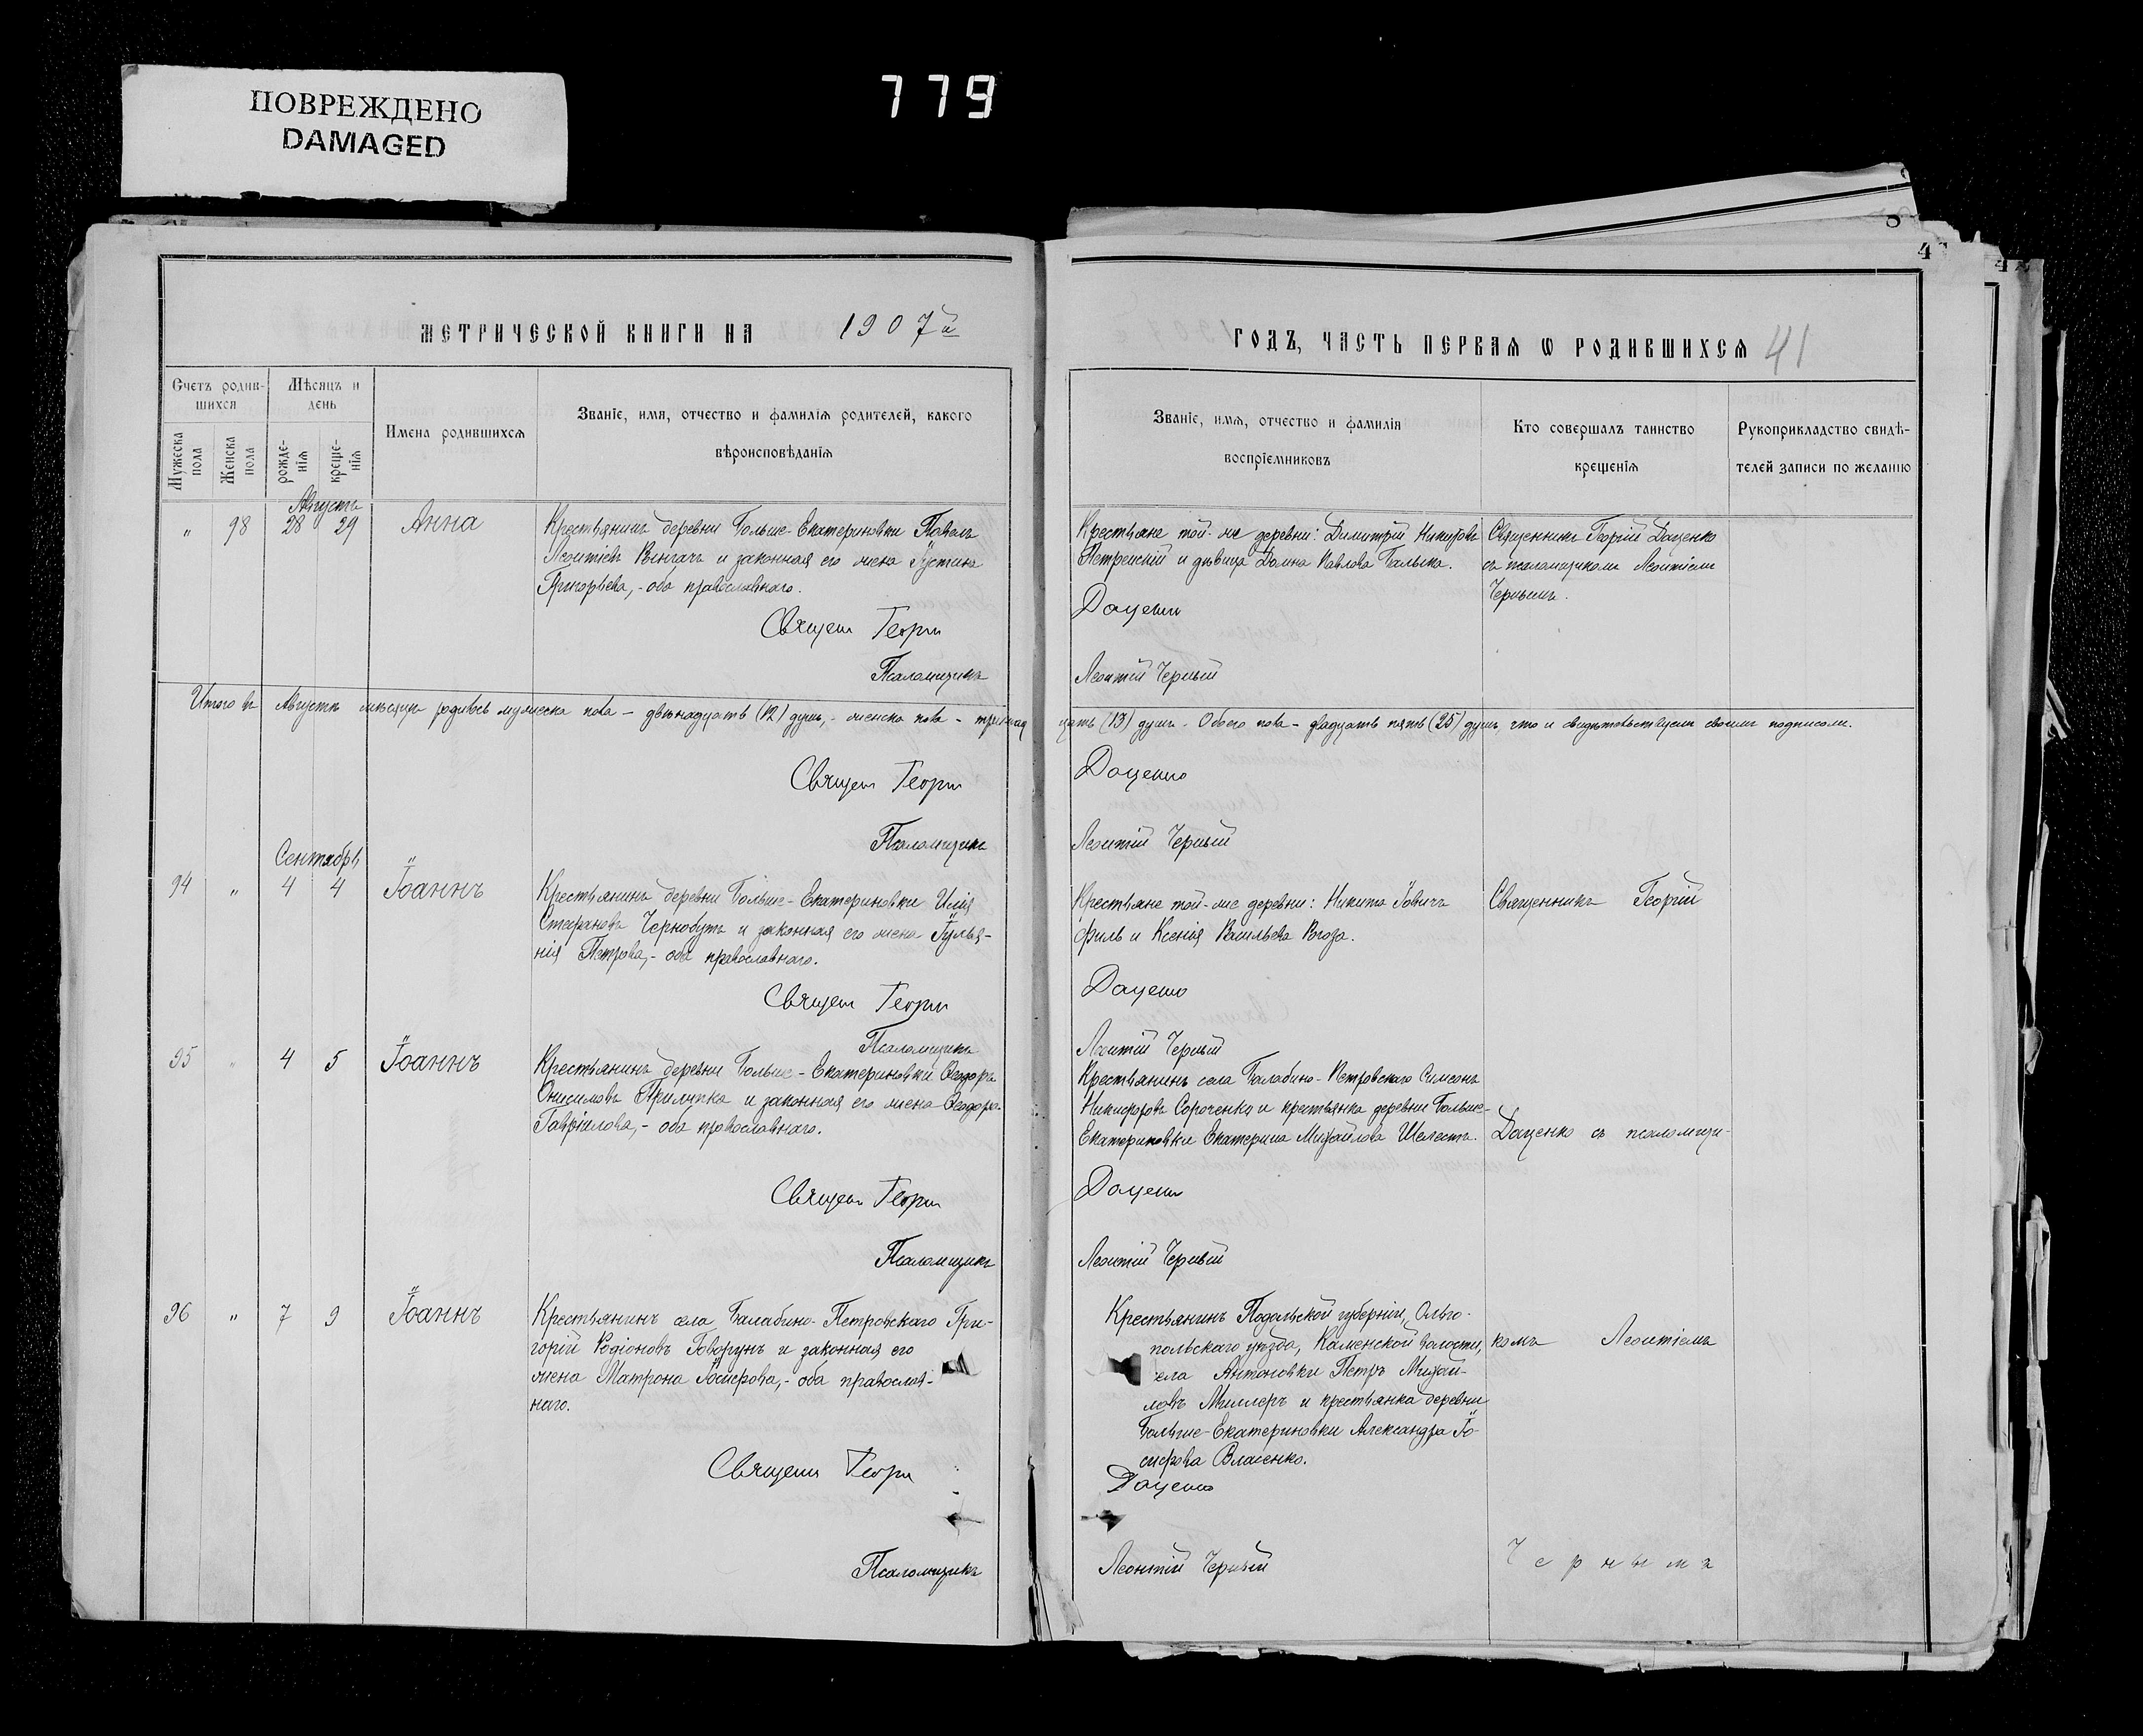 ПОВРЕЖДЕНО
DAMAGED
779
МЕТРИЧЕСКОЙ КНИГИ НА 1907й
ГОДЪ, ЧАСТЬ ПЕРВАѦ Ѡ РОДИВШИХСѦ 41
Счетъ родив-
шихся
Мѣсяцъ и
день
Имена родившихсѧ
Званіе, имя, отчество и фамиліѧ родителей, какого
вѣроисповѣданіѧ
Мужеска
пола
Женска
пола
рожде-
ніѧ
креще-
ніѧ
Званіе, имѧ, отчество и фамилія
воспріемниковъ
Кто совершалъ таинство
крещеніѧ
Рукоприкладство свидѣ-
телей записи по желанію
Августъ
" 98 28 29 Анна
Крестьянинъ деревни Больше-Екатериновки Павелъ
Леонтіевъ и законная его жена Іустина
Григорьева,- оба православнаго.
Священ Георги
Псаломщикъ
Крестьяне той-же деревни: Димитрій Никитовъ
Петренскій и дѣвица Домна Павлова
Доценко
Леонтій Черный
Священникъ Георгій Доценко
съ псаломщикомъ Леонтіемъ
Чернымъ.
Итого въ Августѣ мѣсяцѣ родилось мужеска пола - двѣнадцать (12) душъ, - женска пола - тринад
цать (13) душъ. Обоего пола - двадцать пять (25) душъ, что и свидѣтельствуемъ своимъ подписомъ.
Священ Георги
Доценко
Псаломщикъ
Леонтій Черный
Сентябрь
94 " 4 4 Іоаннъ
Крестьянинъ деревни Больше-Екатериновки Илія
Стефановъ Чернобутъ и законная его жена Іулья-
нія Петрова,- оба православнаго.
Священ Георги
Псаломщикъ
Крестьяне той-же деревни: Никита
Филь и Ксенія Васильева
Доценко
Леонтій Черный
Священникъ Георгій
95 " 4 5 Іоаннъ
Крестьянинъ деревни Больше-Екатериновки Ѳеодоръ
Онисимовъ Прилипка и законная его жена Ѳеодора
Гавріилова,- оба православнаго.
Священ Георги
Псаломщикъ
Крестьянинъ села Балабино-Петровскаго Симеонъ
Никифоровъ Сороченко и крестьянка деревни Больше-
Екатериновки Екатерина Михайлова Шелестъ.
Доценко
Леонтій Черный
Доценко съ псаломщи-
96 " 7 9 Іоаннъ
Крестьянинъ села Балабино-Петровскаго Гри-
горій Родіоновъ Говорунъ и законная его
жена Матрона Іосифова,- оба православ-
наго.
Священ Георги
Псаломщикъ
Крестьянинъ Подольской губерніи, Ольго-
польскаго уѣзда, Каменской волости,
села Антоновки Петръ Михай-
ловъ Миллеръ и крестьянка деревни
Больше-Екатериновки Александра Іо-
сифова Власенко.
Доценко
Леонтій Черный
комъ Леонтіемъ
Чернымъ